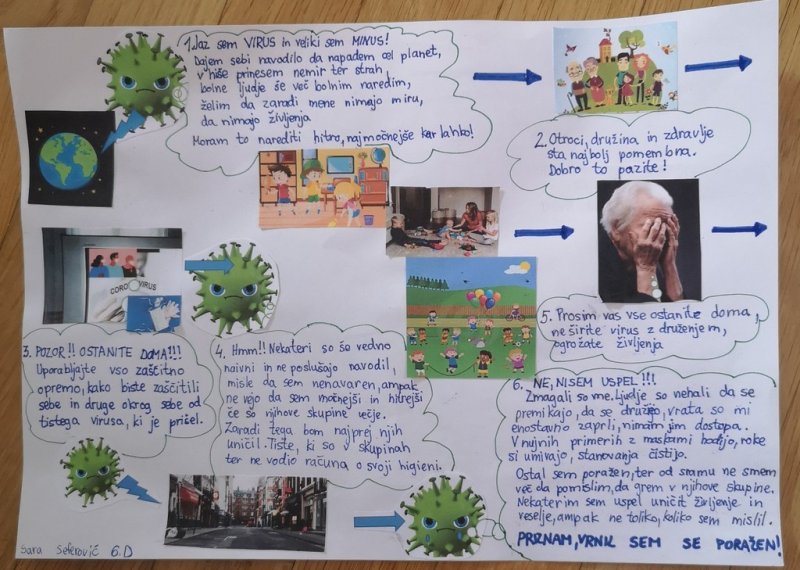 1. Jaz sem VIRUS in veliki sem MINUS!
Dajem sebi navodilo da napadem cel planet,
v hiše prinesem nemir ter strah,
bolne ljudje še več bolnim naredim,
želim da zaradi mene nimajo miru,
da nimajo življenja
Moram to narediti hitro, najmočnejše kar lahko!
2. Otroci, družina in zdravlje
sta najbolj pomembna.
Dobro to pazite!
CORONAVIRUS
3. POZOR!! OSTANITE DOMA!!!
Uporabljajte vso zaščitno
opremo, kako biste zaščitili
sebe in druge okrog sebe od
tistega virusa, ki je prišel.
4. Hmm!! Nekateri so še vedno
naivni in ne poslušajo navodil,
misle da sem nenavaren, ampak
ne vejo da sem močnejši in hitrejši
če so njihove skupine večje.
Zaradi tega bom najprej njih
uničil. Tiste, ki so v skupinah
ter ne vodijo računa o svoji higieni.
5. Prosim vas vse ostanite doma,
ne širite virus z druženjem,
ogrožate življenja
6. NE, NISEM USPEL!!!
Zmagali so me. Ljudje so nehali da se
premikajo, da se družijo, vrata so mi
enostavno zaprli, nimam jim dostopa.
V nujnih primerih z maskami hodijo, roke
si umivajo, stanovanja čistijo.
Ostal sem poražen, ter od sramu ne smem
več da pomislim, da grem v njihove skupine.
Nekaterim sem uspel uničit življenje in
veselje, ampak ne toliko, koliko sem mislil.
PRIZNAM, VRNIL SEM SE PORAŽEN!
Sara Seferović 6.D